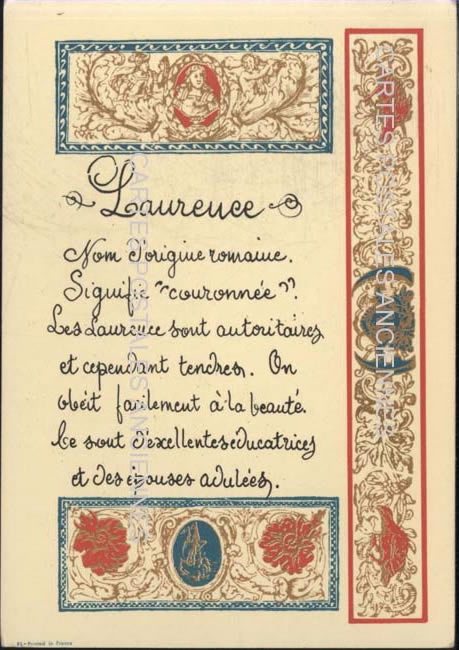 Laurence
Nom d'origine romaine.
Signifie "couronnée".
Les Laurence sont autoritaires
et cependant tendres. On
obéit facilement à la beauté.
Ce sont d'excellentes educatrices
et des épouses adulées.
CARTES POSTALES ANCIENNES
CARTES POSTALES ANCIENNES
Printed in France